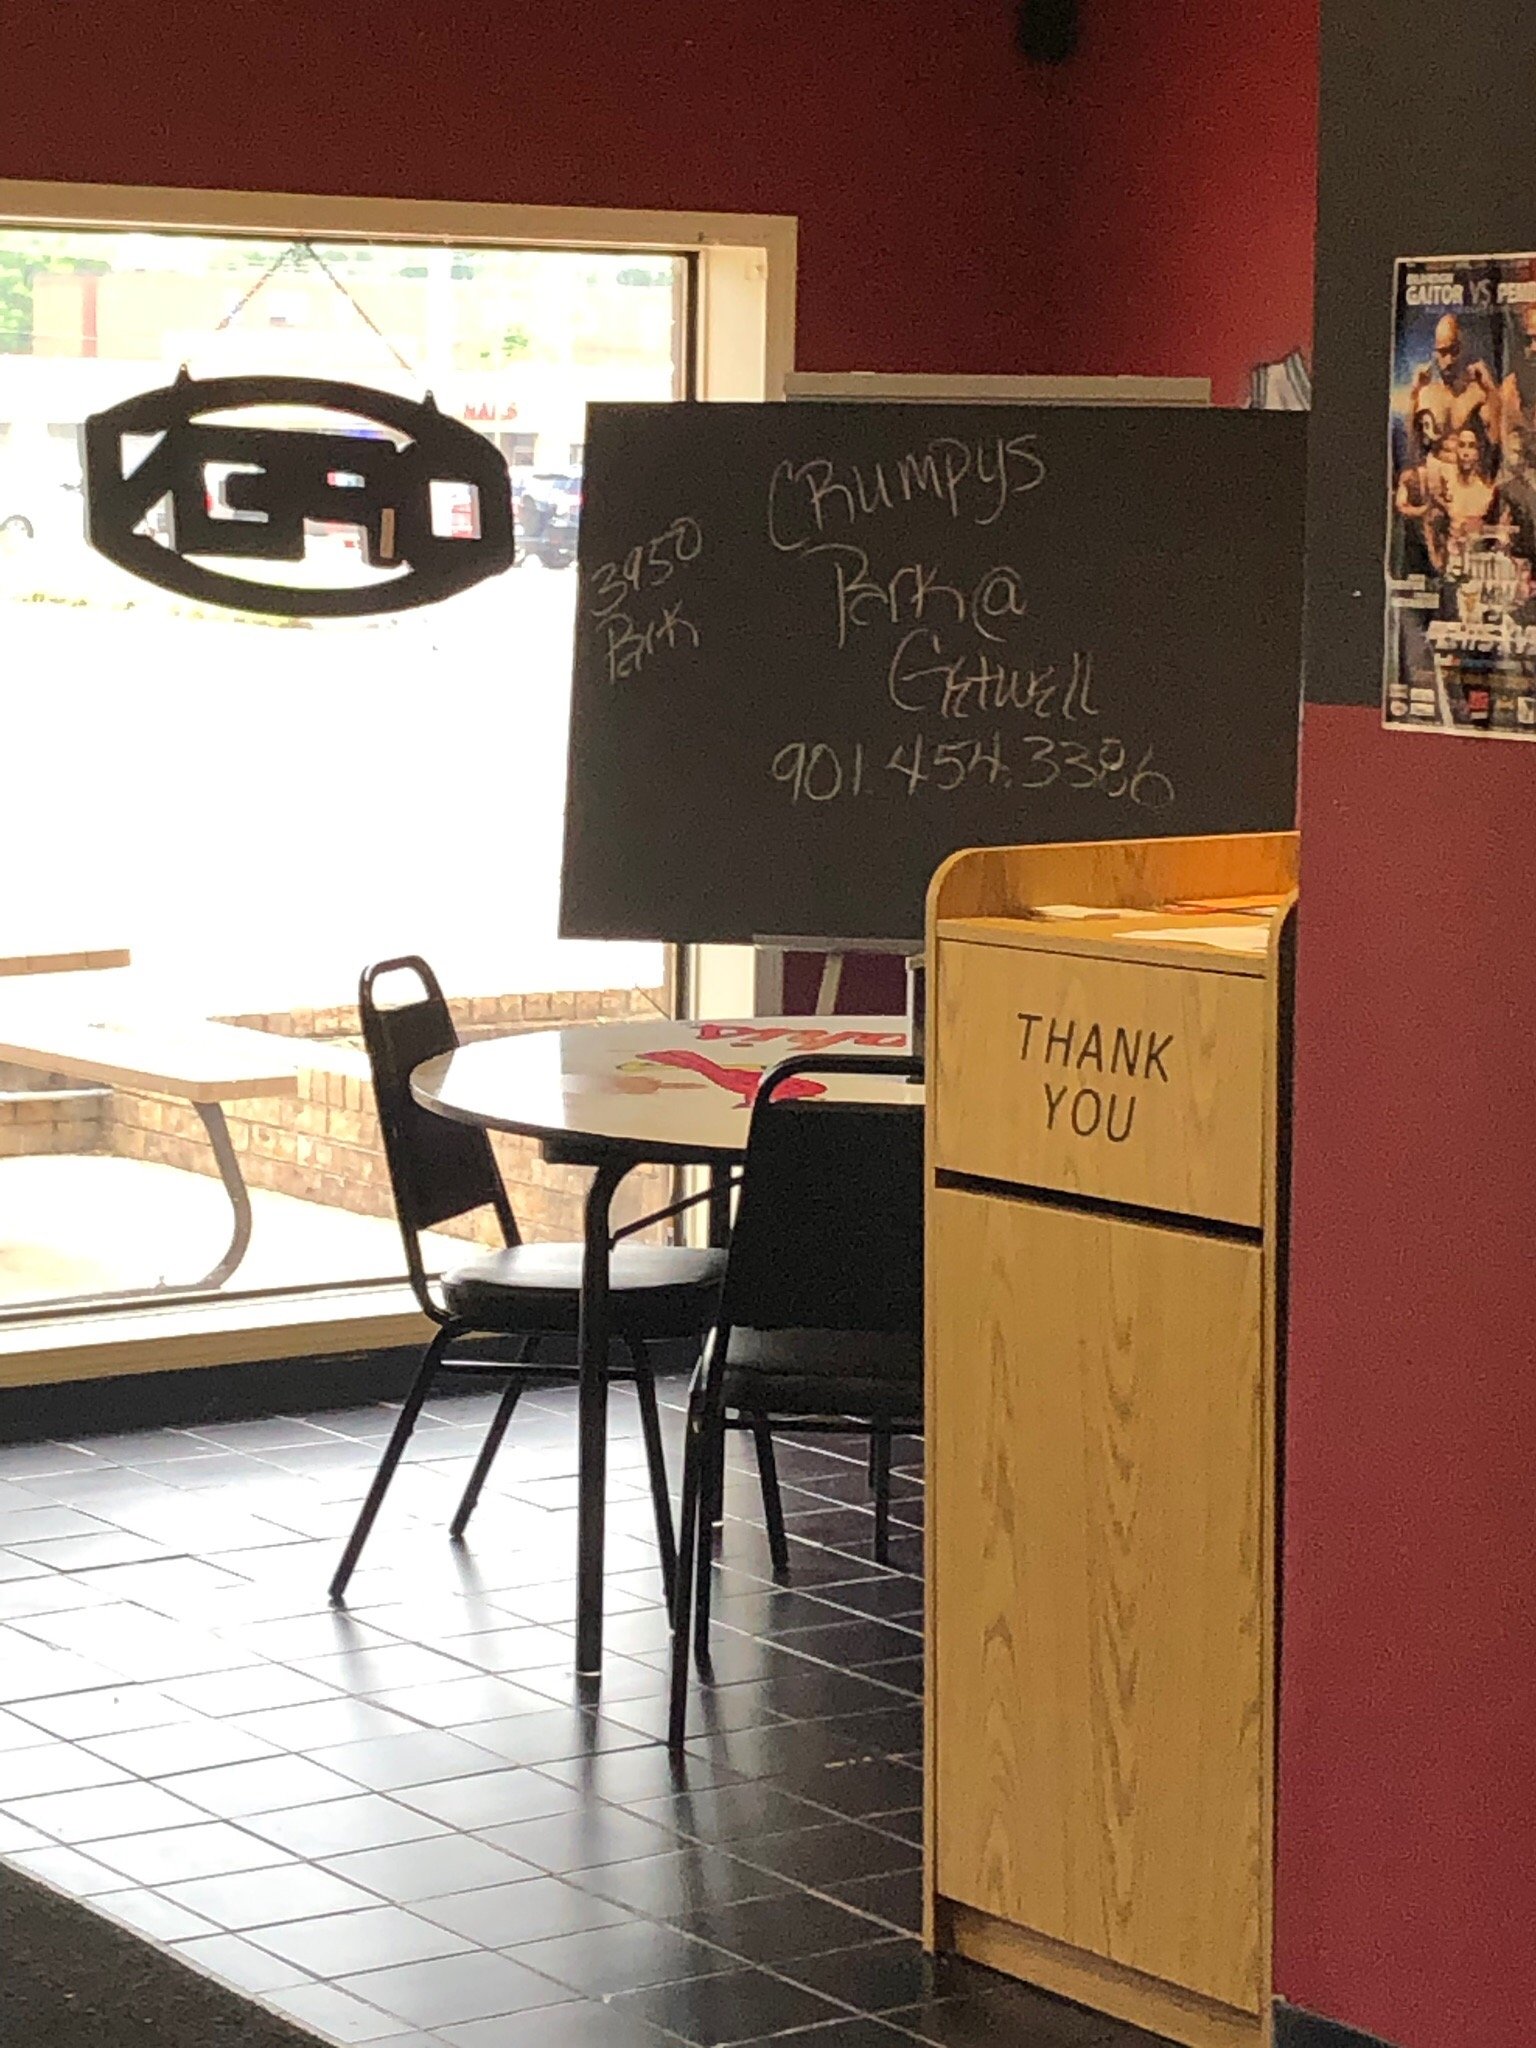 NAILS
CRumpys
Park @
GEtwEll
901.454.3386
3950
Park
THANK
YOU
GAITOR VS
MMA